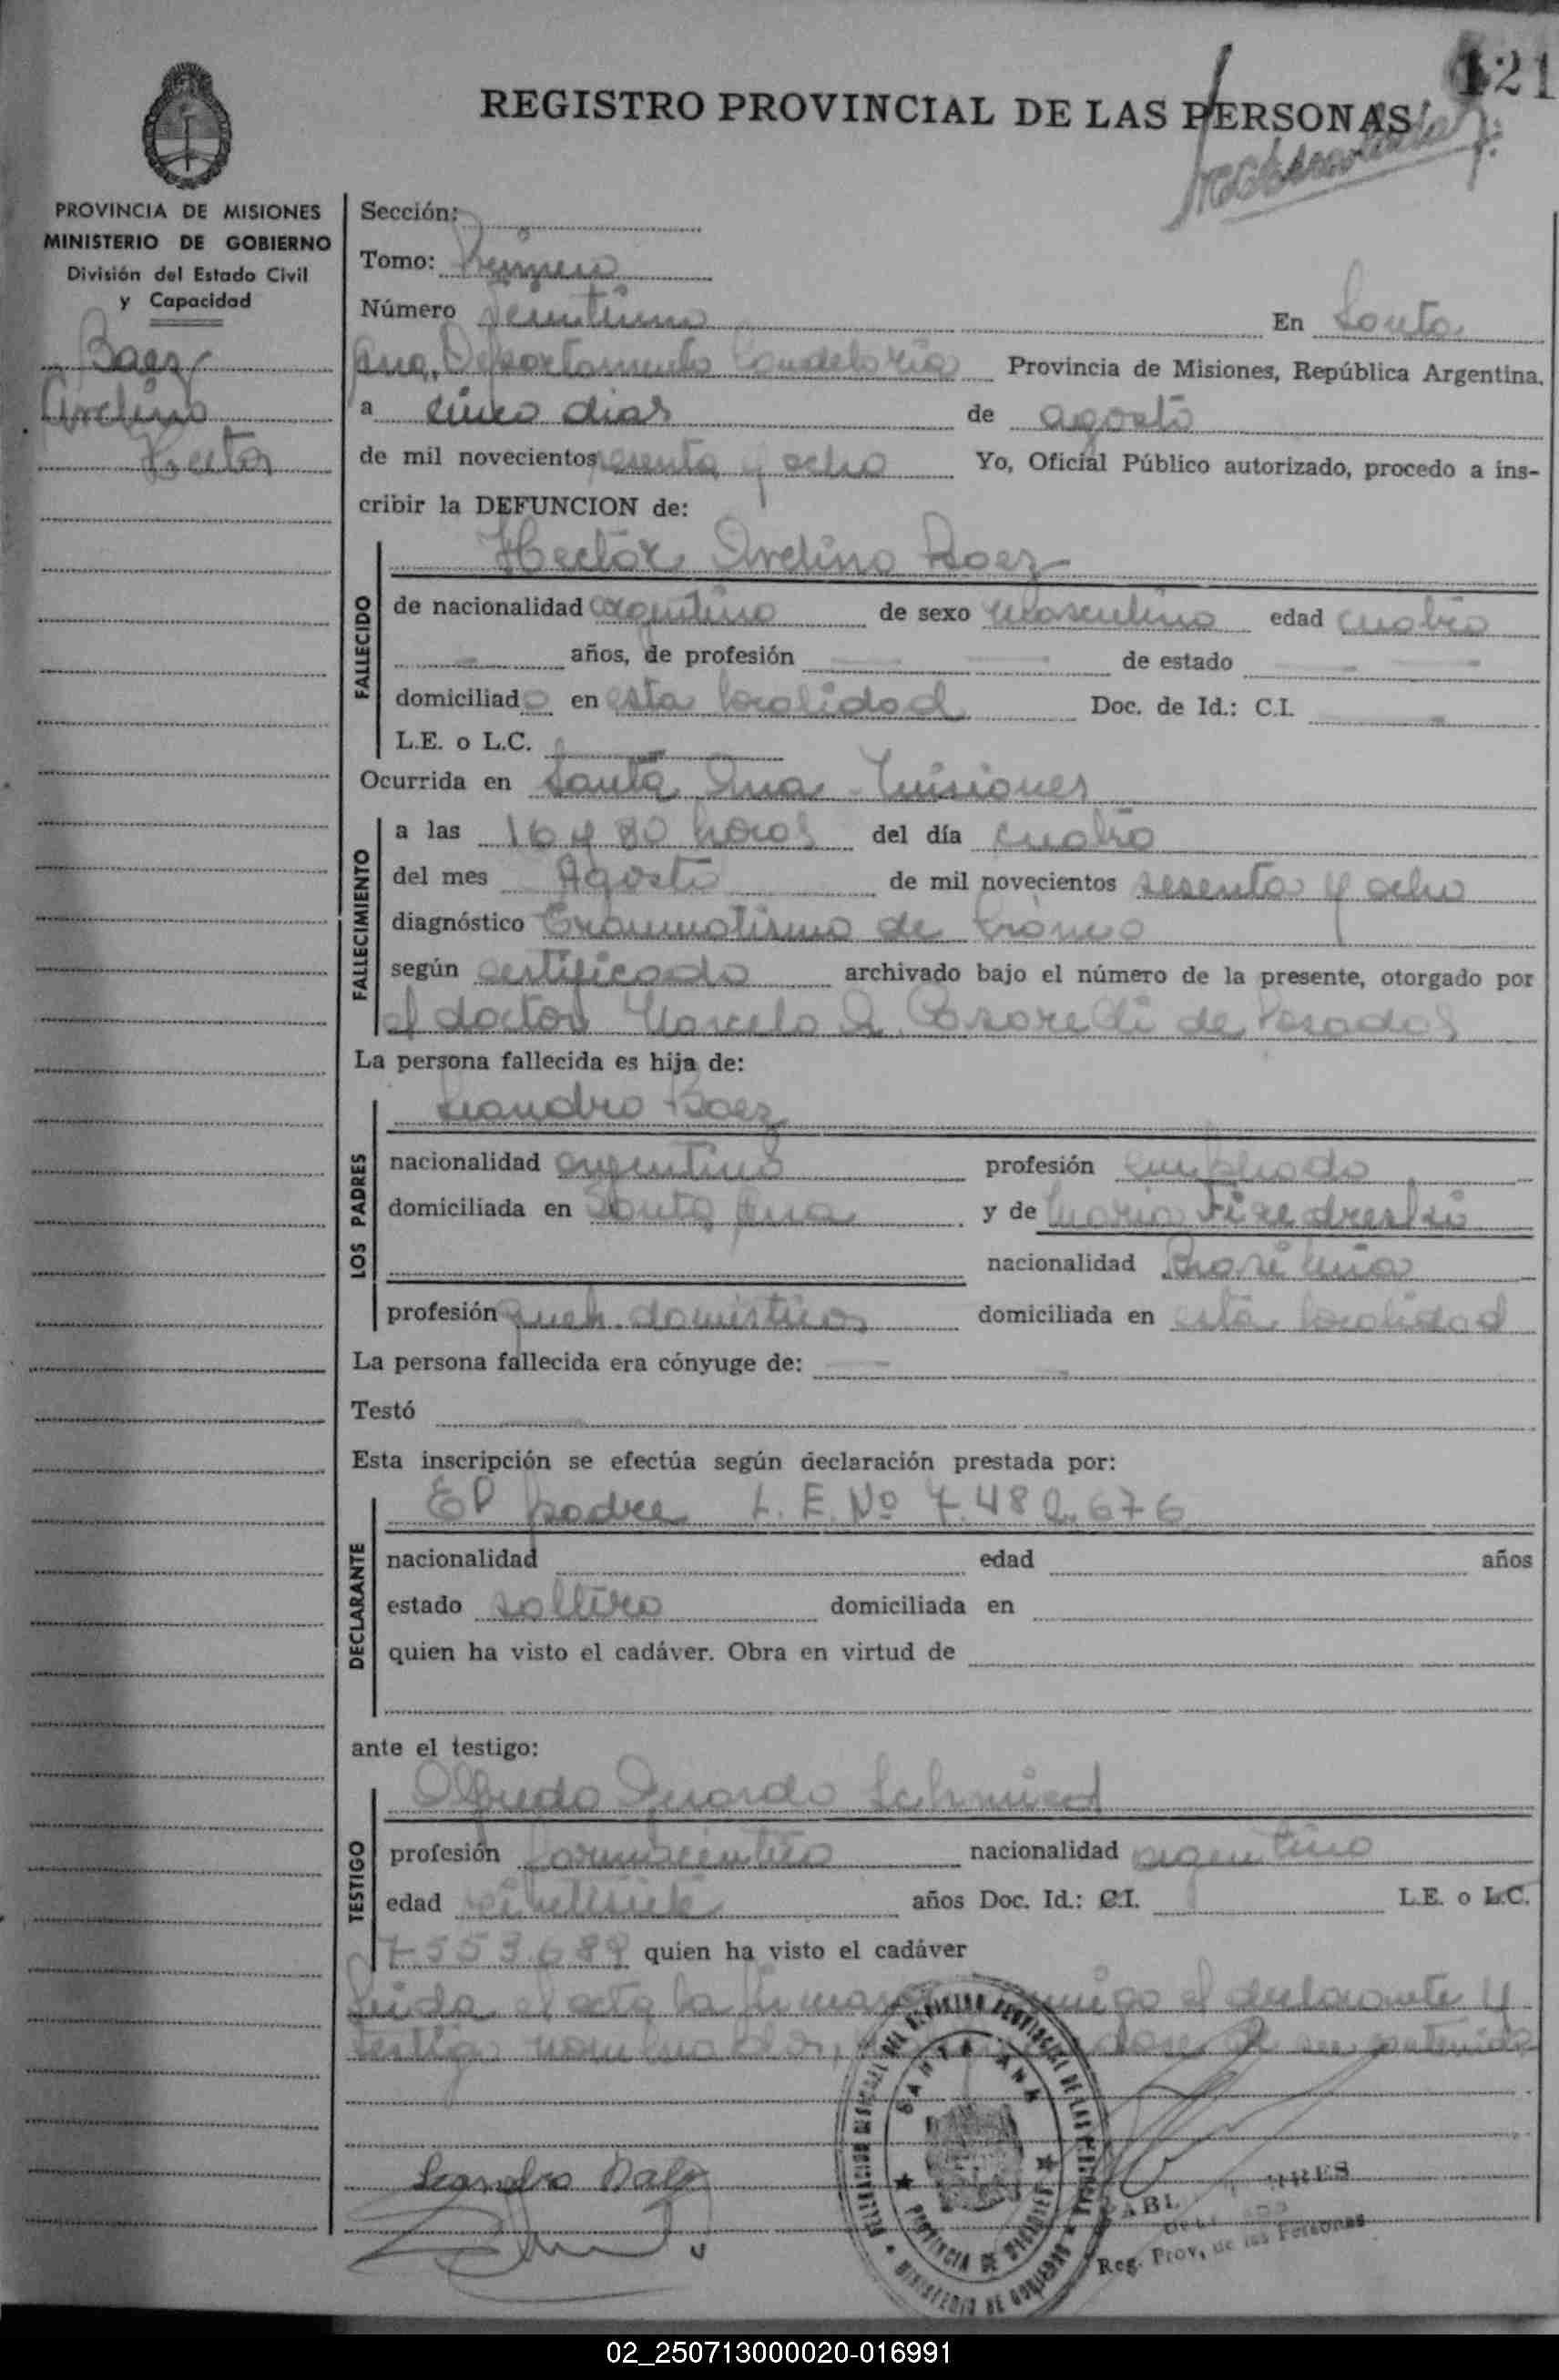 121
REGISTRO PROVINCIAL DE LAS PERSONAS
PROVINCIA DE MISIONES
MINISTERIO DE GOBIERNO
División del Estado Civil
y Capacidad
Baez
Avelino
Hector
Sección:
Tomo: Primero
Número veintiuno En Santa
Ana, Departamento Candelaria Provincia de Misiones, República Argentina,
a cinco dias de agosto
de mil novecientos sesenta y ocho Yo, Oficial Público autorizado, procedo a ins-
cribir la DEFUNCION de:
Hector Avelino Baez
FALLECIDO
de nacionalidad argentino de sexo masculino edad cuatro
años, de profesión de estado
domiciliado en esta localidad Doc. de Id.: C.I.
L.E. o L.C.
Ocurrida en Santa Ana - Misiones
FALLECIMIENTO
a las 16 y 30 horas del día cuatro
del mes Agosto de mil novecientos sesenta y ocho
diagnóstico Traumatismo de Cráneo
según certificado archivado bajo el número de la presente, otorgado por
el doctor Marcelo de Posadas
La persona fallecida es hija de:
Leandro Baez
LOS PADRES
nacionalidad argentino profesión empleado
domiciliada en Santa Ana y de Maria
nacionalidad Brasileña
profesión queh. domésticos domiciliada en esta localidad
La persona fallecida era cónyuge de:
Testó
Esta inscripción se efectúa según declaración prestada por:
El padre L. E. Nº 7.482.676
DECLARANTE
nacionalidad edad años
estado soltero domiciliada en
quien ha visto el cadáver. Obra en virtud de
ante el testigo:
Alfredo Schmied
TESTIGO
profesión nacionalidad argentino
edad años Doc. Id.: C.I. L.E. o L.C.
7553.689 quien ha visto el cadáver
Leida el acta la conmigo el declarante y
testigo de su contenido
SANTA ANA
PROVINCIA DE MISIONES
MINISTERIO DE GOBIERNO
Leandro Baez
Reg. Prov. de las Personas
02_250713000020-016991